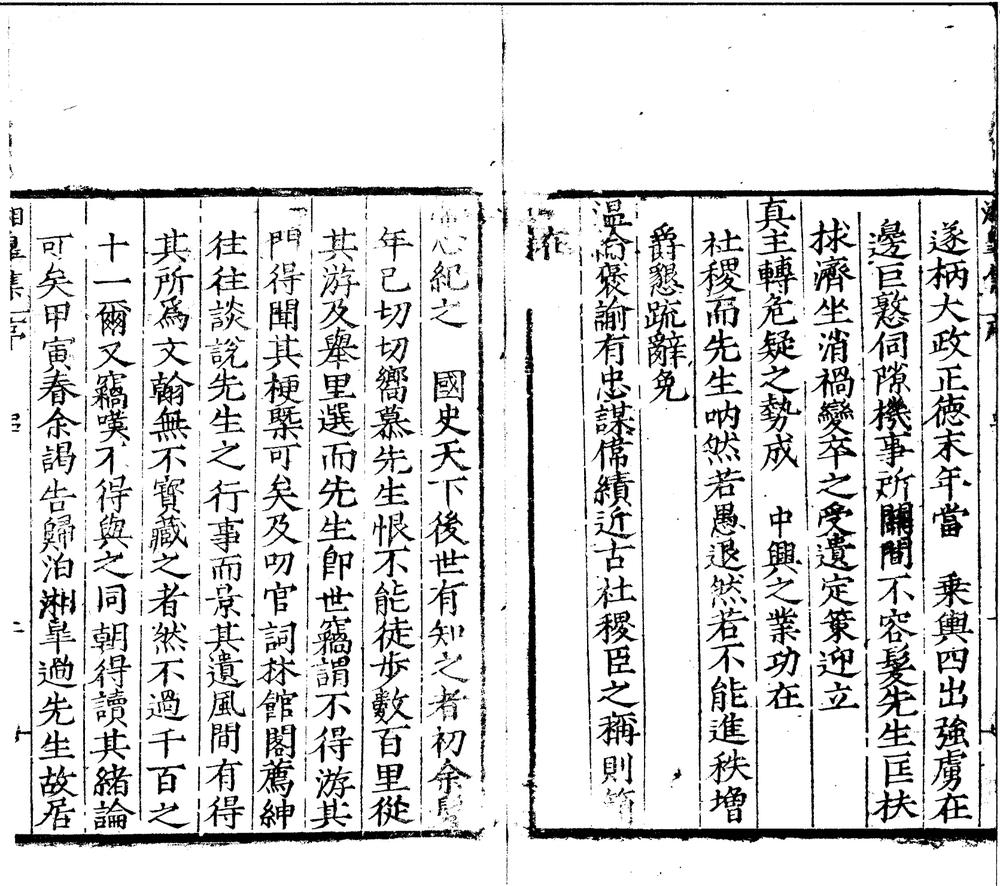 遂柄大政正德末年當　乗輿四出強虜在
邊巨憝伺隙機事所關間不容髮先生匡扶
捄濟坐消禍變卒之受遺定策迎立
真主轉危疑之勢成　中興之業功在
社稷而先生吶然若愚退然若不能進秩增
爵懇疏辭免
溫綸褒諭有忠謀偉績近古社稷臣之稱則簡
心紀之　國史天下後世有知之者初余
年已切切嚮慕先生恨不能徒步數百里從
其游及舉里選而先生卽世竊謂不得游其
門得聞其梗槩可矣及叨官詞林館閣薦紳
往往談說先生之行事而景其遺風間有得
其所爲文翰無不寳藏之者然不過千百之
十一爾又竊嘆不得與之同朝得讀其緒論
可矣甲寅春余謁告歸泊湘臯過先生故居
湘臯集 序